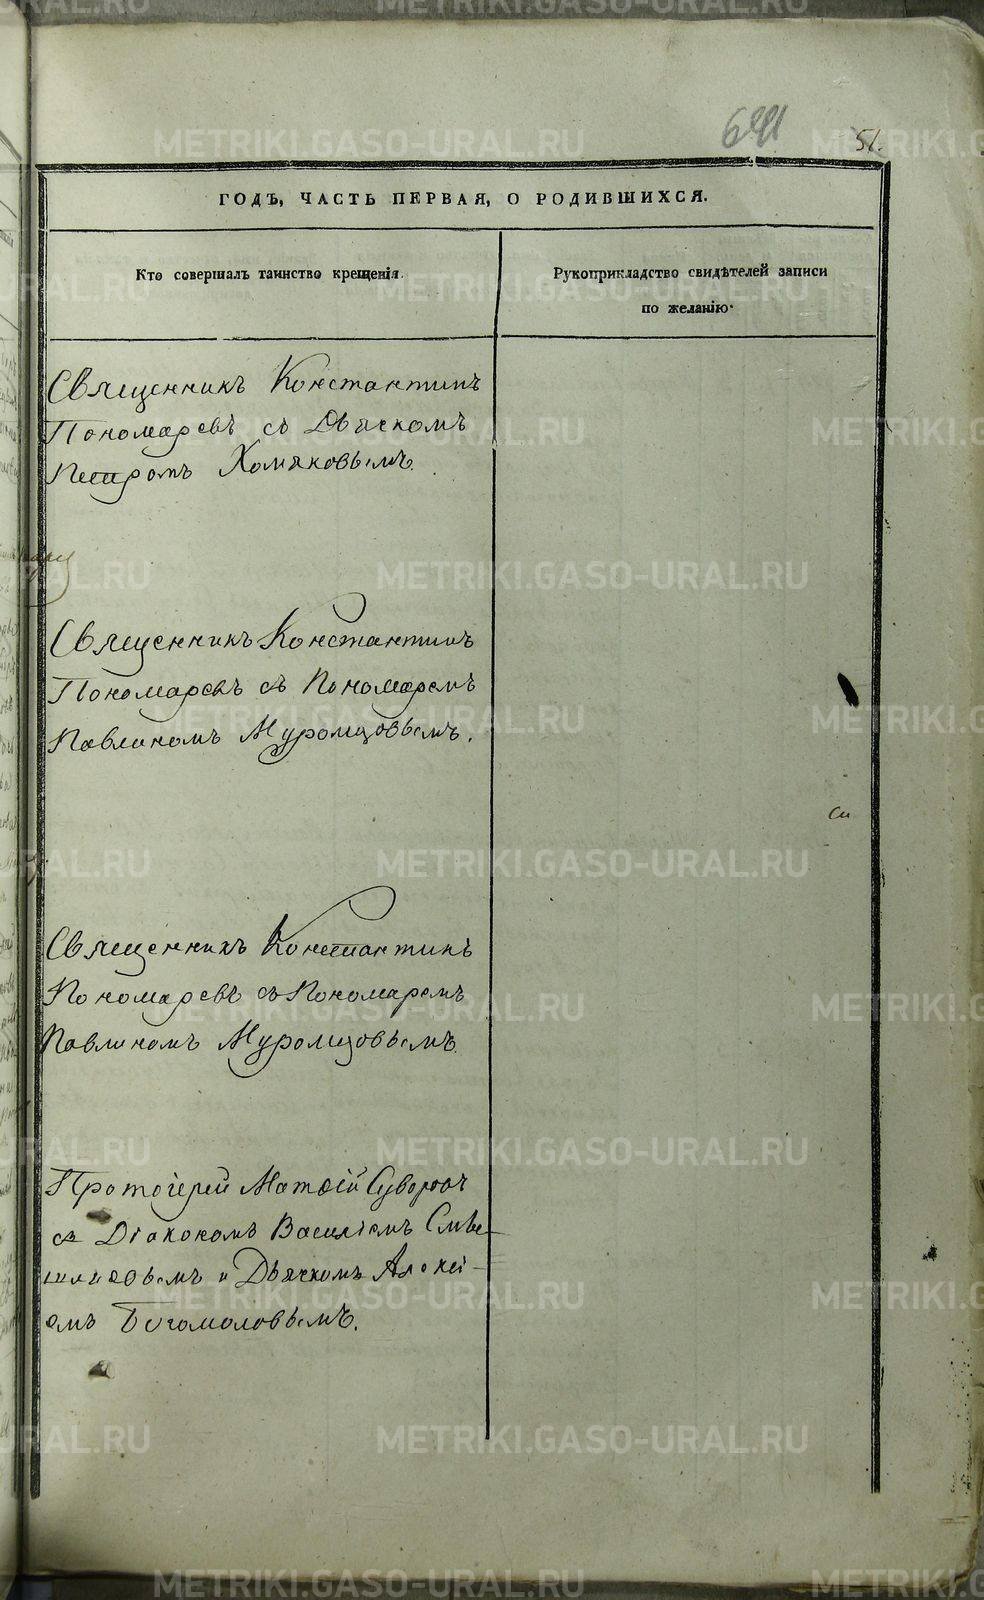 51.
ГОДЪ, ЧАСТЬ ПЕРВАЯ, О РОДИВШИХСЯ.
Кто совершалъ таинство крещенія.
Рукоприкладство свидѣтелей записи
по желанію.
Священникъ Константинъ
Пономаревъ съ Дьячкомъ
Петромъ Хомяковымъ.
Священникъ Константинъ
Пономаревъ съ Пономаремъ
Павлиномъ Муромцовымъ.
Священникъ Константинъ
Пономаревъ съ Пономаремъ
Павлиномъ Муромцовымъ.
Протоіерей Матѳій Суворовъ
съ Діакономъ Василіемъ
и Дьячкомъ Алексі-
емъ Богомоловымъ.
METRIKI.GASO-URAL.RU